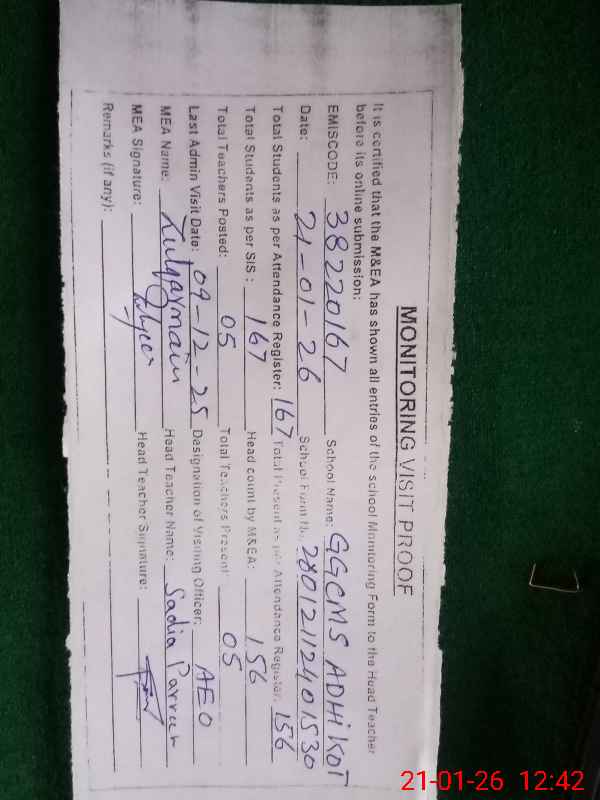 MONITORING VISIT PROOF
It is certified that the M&EA has shown all entries of the school Monitoring Form to the Head Teacher
before its online submission:
EMISCODE: 38220167 School Name: GGCMS ADHI KOT
Date: 21-01-26 School Form No. 28012112401530
Total Students as per Attendance Register: 167 Total Present as per Attendance Register: 156
Total Students as per SIS: 167 Head count by M&EA: 156
Total Teachers Posted: 05 Total Teachers Present: 05
Last Admin Visit Date: 09-12-25 Designation of Visiting Officer: AEO
MEA Name: Zulqarnain Head Teacher Name: Sadia
MEA Signature: Head Teacher Signature:
Remarks (if any):
21-01-26 12:42